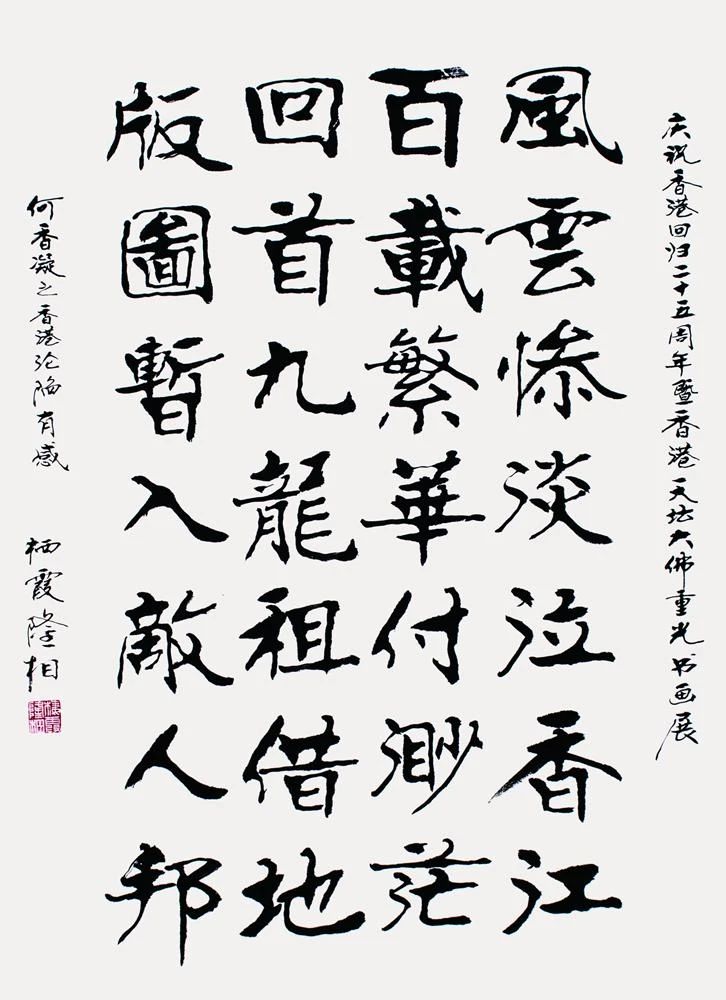 庆祝香港回归二十五周年暨香港天坛大佛重光书画展
風雲惨淡泣香江
百載繁華付渺茫
回首九龍租借地
版圖暫入敵人邦
何香凝之香港沦陷有感
栖霞隆相